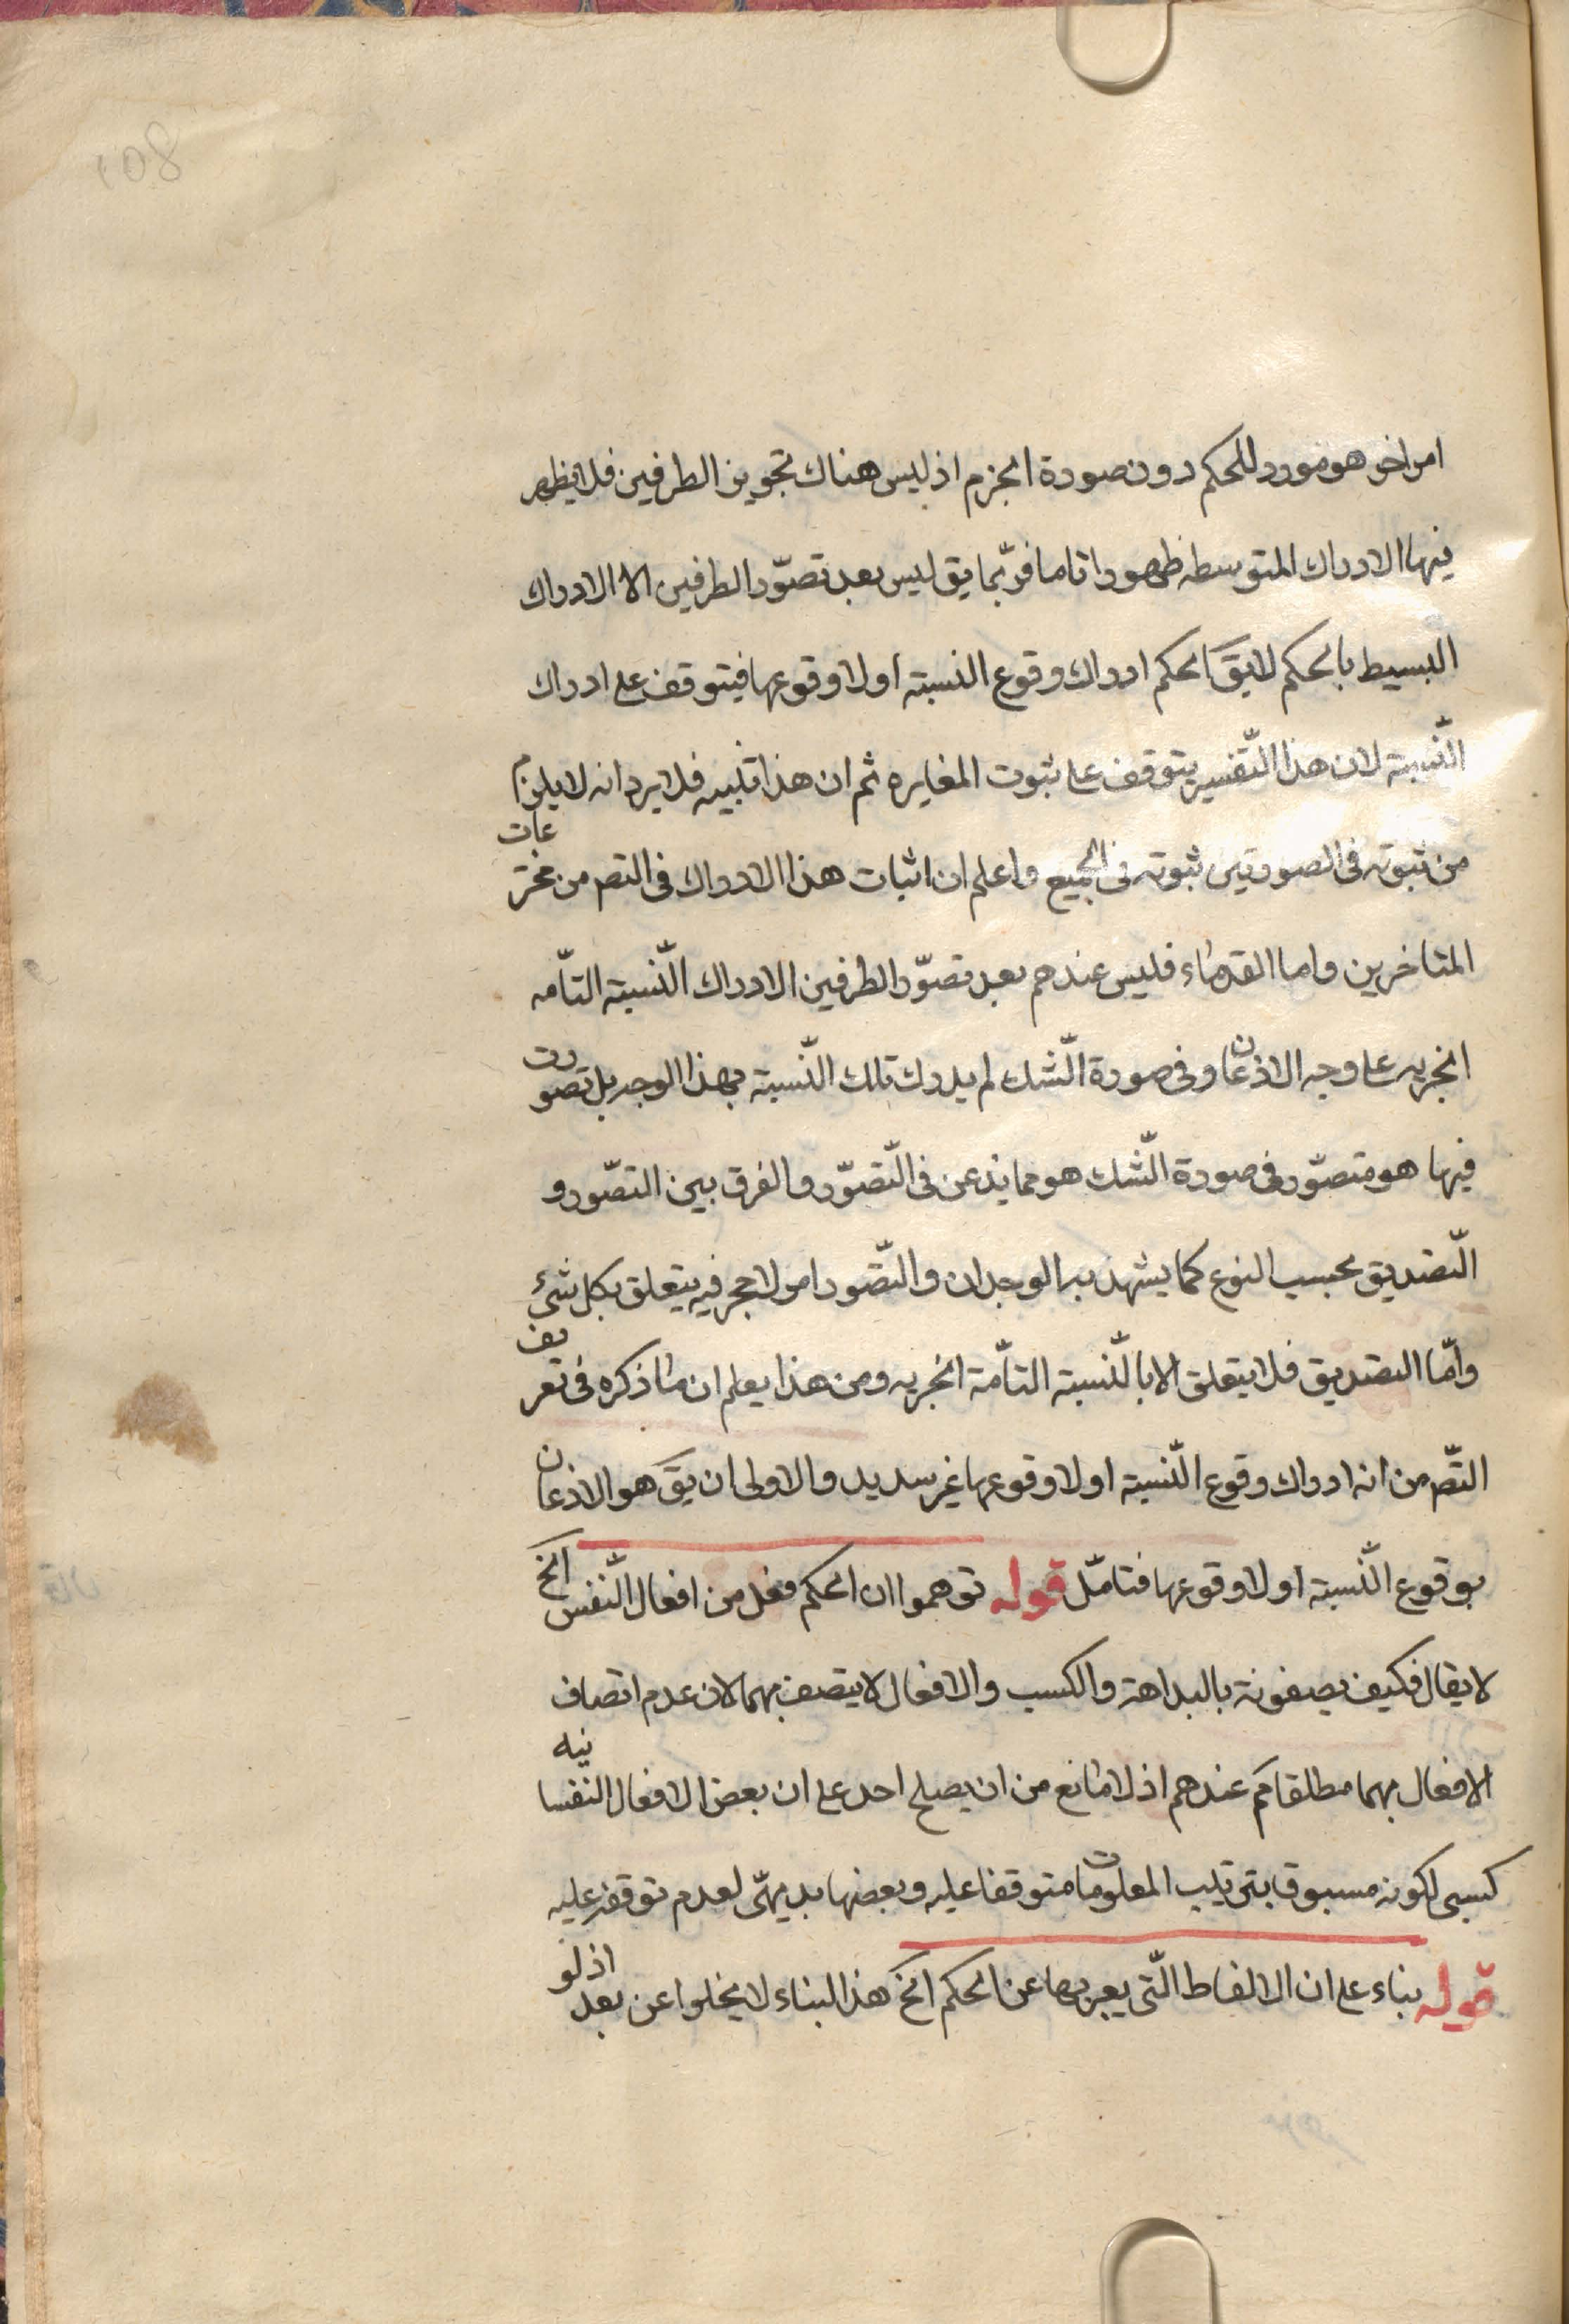 امر اخر هو مورد للحكم دون صورة الجزم اذ ليس هناك تجويز الطرفين فلا يظهر
فيها الادراك المتوسطه ظهورا تاما فربّما يق ليس بعد تصوّر الطرفين الا الادراك
البسيط بالحكم لا يقَ الحكم ادراك وقوع النسبته او لا وقوعها فيتوقف على ادراك
النّسبته لان هذا التّفسير يتوقف على ثبوت المغايره ثم ان هذا تنبيه فلا يرد انه لا يلزم
من ثبوته فى الصورتين ثبوته فى الجميع واعلم ان اثبات هذا الادراك فى التص من مخترعات
المتاخرين واما القدماء فليس عندهم بعد تصوّر الطرفين الا ادراك النّسبته التاّمه
الخبريه على وجه الاذعان وفى صورة الشّك لم يدرك تلك النّسبتة بهذا الوجه بل تصورت
فيها هو متصوّر فى صورة الشّك هو مما يذعن فى التّصوّر والفرق بين التصّور و
التّصديق بحسب النوع كما يشهد به الوجدان والتصّور امر لا حجر فيه يتعلق بكل شئ
وامّا التصديق فلا يتعلق الا بالنّسبته التاّمّة الخبريه ومن هذا يعلم ان ما ذكره فى تعريف
التصّ من انه ادراك وقوع النّسبته او لا وقوعها غير سديد والاولى ان يقَ هو الاذعان
بوقوع النّسبته او لا وقوعها فتامّل قوله توهموا ان الحكم فعل من افعال النّفس الخ
لا يقال فكيف يصفونه بالبداهة والكسب والافعال لا يتصف بهما لان عدم اتصاف
الافعال بهما مطلقا كم عندهم اذ لا مانع من ان يصلح احد على ان بعض الافعال النفسانيه
كسبى لكونه مسبوقا بترتيب المعلومات متوقفا عليه وبعضها بديهىّ لعدم توقفه عليه
قوله بناء على ان الالفاظ الّتى يعبر بها عن الحكم الخ هذا البناء لا يخلوا عن بعد اذ لو